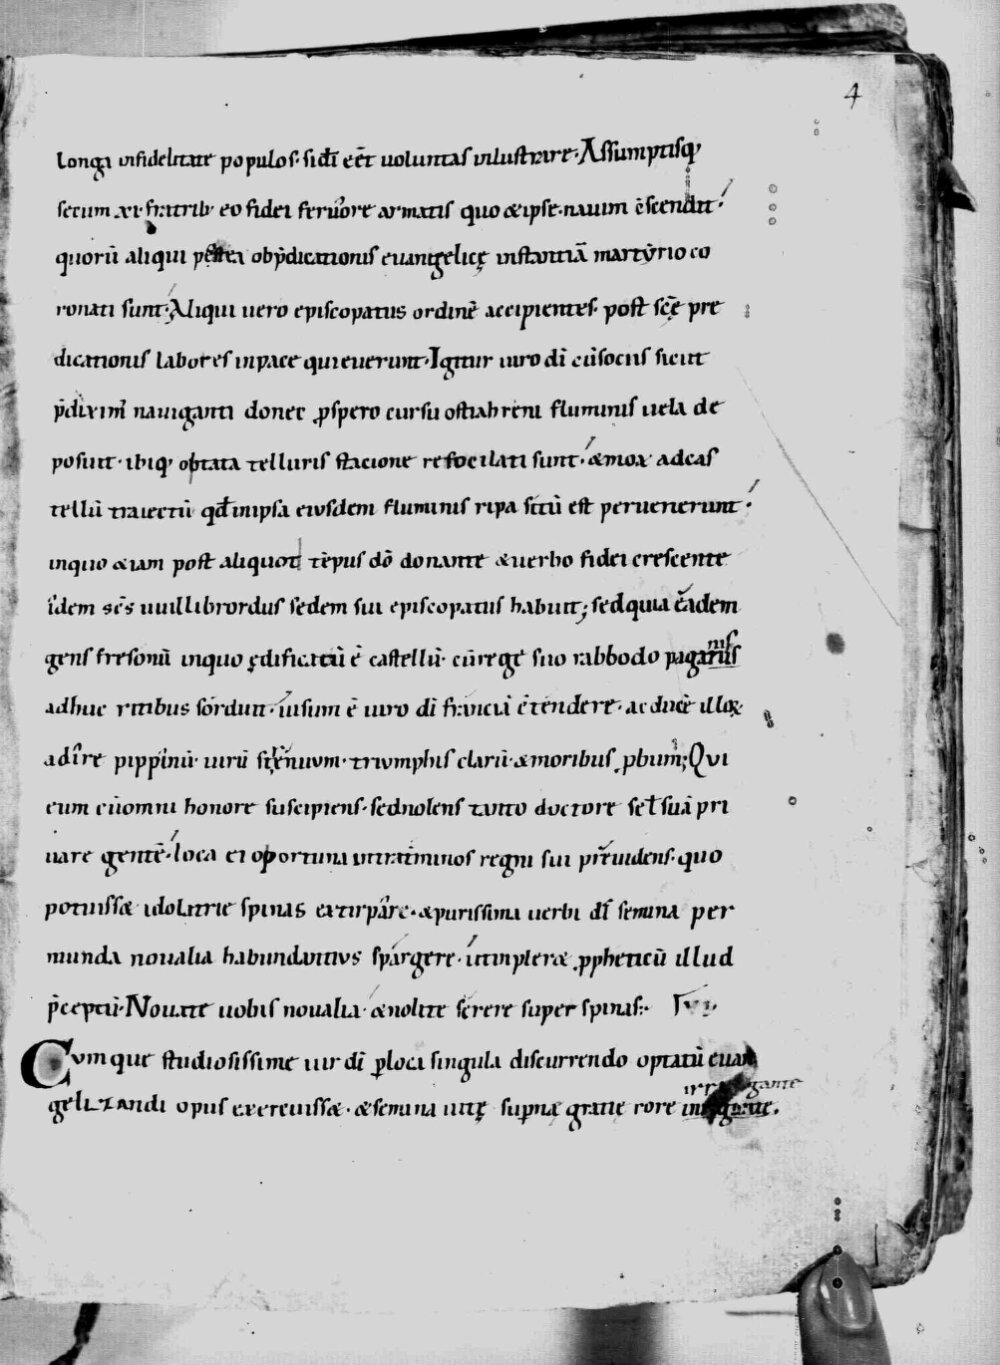 4
longa infidelitate populos. si dī eēt uoluntas inlustrare. Assumptisq;
secum .xi. fratrib; eo fidei feruore armatis quo & ipse. nauim c̄scendit.
quorū aliqui postea ob p̄dicationis euangelicę instantiā martyrio co
ronati sunt. Aliqui uero episcopatus ordinē accipientes. post scē pre
dicationis labores inpace quieuerunt. Igitur uiro dī cū sociis sicut
p̄diximꝰ nauiganti donec ꝓspero cursu ostia hreni fluminis uela de
posuit. ibiq; optata telluris stacione refocilati sunt. & mox ad cas
tellū traiectū qđ inipsa eiusdem fluminis ripa sitū est peruenerunt.
inquo &iam post aliquot tēpus dō donante & uerbo fidei crescente
idem scs uuillibrordus sedem sui episcopatus habuit; sed quia eadem
gens fresonū inquo ędificatū ē castellū. cū rege suo rabbodo paganis
nis
adhuc ritibus sorduit. uisum ē uiro dī franciā c̄tendere. ac ducē illoꝝ
adire pippinū. uirū strenuum. triumphis clarū. & moribus ꝓbum; Qui
eum cū omni honore suscipiens. sed nolens tanto doctore se & suā pri
uare gentē. loca ei oportuna intra t̄minos regni sui p̄uidens. quo
potuiss& idolatrie spinas extirpare. & purissima uerbi dī semina per
munda noualia habundantius spargere. & impler& ꝓpheticū illud
p̄ceptū. Nouate uobis noualia. & nolite serere super spinas:.
Cumque studiosissime uir dī ꝑ loca singula discurrendo optatū euan
irrigante
gelizandi opus exercuiss&. & semina uitę supnę gratię rore